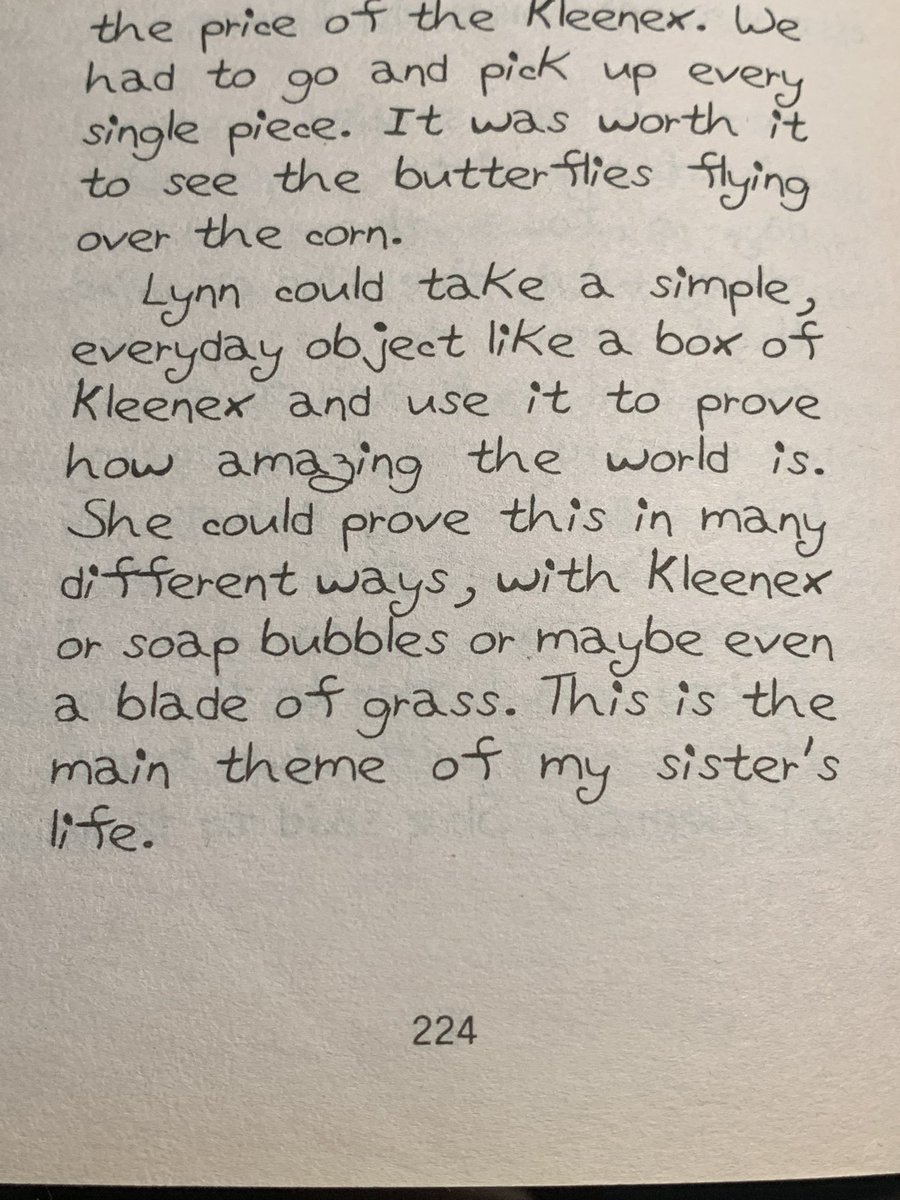 the price of the Kleenex. We
had to go and pick up every
single piece. It was worth it
to see the butterflies flying
over the corn.
Lynn could take a simple,
everyday object like a box of
Kleenex and use it to prove
how amazing the world is.
She could prove this in many
different ways, with Kleenex
or soap bubbles or maybe even
a blade of grass. This is the
main theme of my sister's
life.
224